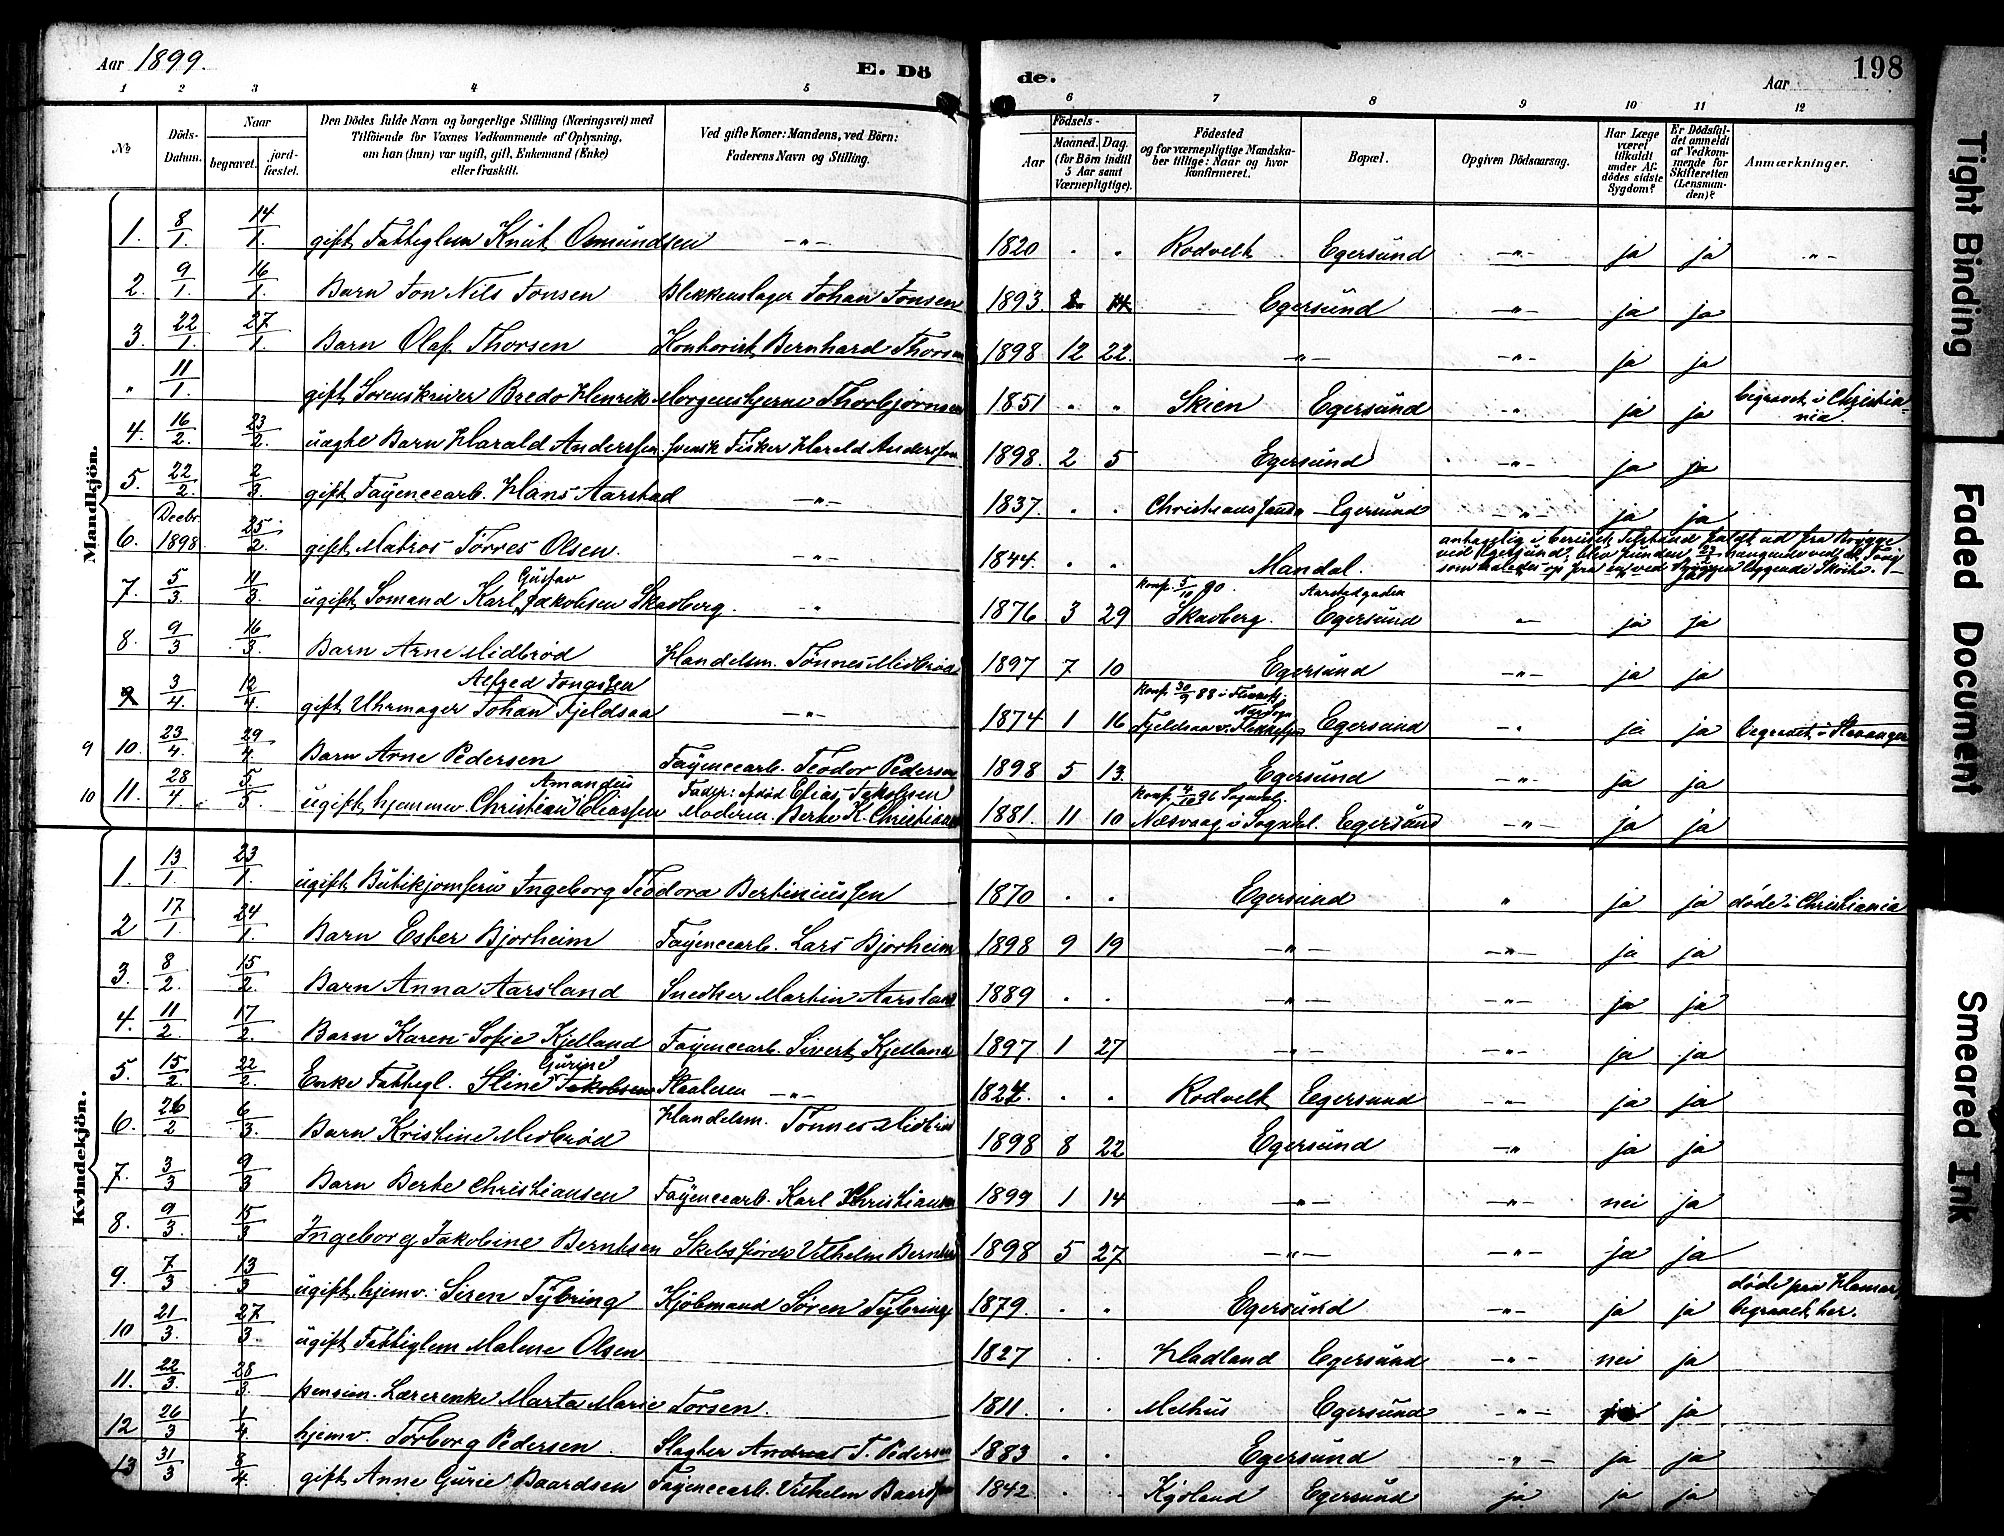 Aar 1899.
E. Dö
de.
Aar
198
1 2 3 4 5 6 7 8 9 10 11 12
No
Döds-Datum.
Naar
begravet.
jord-fæstet.
Den Dödes fulde Navn og borgerlige Stilling (Næringsvei) med
Tilföiende for Voxnes Vedkommende af Oplysning,
om han (hun) var ugift, gift, Enkemand (Enke)
eller fraskilt.
Ved gifte Koner: Mandens, ved Börn:
Faderens Navn og Stilling.
Födsels-
Aar
Maaned. Dag.
(for Börn indtil
5 Aar samt
Værnepligtige).
Födested
og for værnepligtige Mandska-
ber tillige: Naar og hvor
konfirmeret.
Bopæl.
Opgiven Dödsaarsag.
Har Læge
været
tilkaldt
under Af-
dödes sidste
Sygdom?
Er Dödsfal-
det anmeldt
af Vedkom-
mende for
Skifteretten
(Lensman-
den)?
Anmærkninger.
Mandkjön.
1. 8/1. 14/1. gift Fattiglem Knut Omundsen —„— 1820 „ „ Rodvelt Egersund —„— ja ja —„—
2. 9/1. 16/1. Barn Jon Nils Jonsen Blikkenslager Johan Jonsen 1893 Egersund —„— ja ja
3. 22/1. 27/1. Barn Olaf Thorsen Kontorist Bernhard Thorsen 1898 12 22. —„— —„— ja ja
„ 11/1 gift Sorenskriver Bredo Henrik Morgenstjerne Thorbjørnsen 1851 „ „ Skien Egersund —„— ja ja begravet i Christia-
nia.
4. 16/2. 23/2. uægte Barn Harald Anderssen svensk Fisker Harald Anderssen 1898. 2 5 Egersund —„— ja ja
5. 22/2. 2/3. gift Fayencearb. Hans Aarstad —„— 1837. „ „ Christianssand Egersund —„— ja ja
6. Decbr. 1898. 25/2. gift Matros Törres Olsen. —„— 1844. „ „ Mandal.
7. 5/3. 11/3. ugift Sømand Karl Gustav Jakobsen Skadberg. —„— 1876 3 29 konf. 5/10 90. Skadberg. Aarstadgaden Egersund —„— ja ja
8. 9/3 16/3. Barn Arne Midbrød Handelsm. Tønnes Midbrød 1897 7 10 Egersund —„— ja ja
9 3/4. 12/4. gift Uhrmager Johan Alfred Fjeldsaa —„— 1874 1 16 konf. 30/9 88 Egersund —„— ja ja begravet i Stavanger
9 10. 23/4. 29/4. Barn Arne Pedersen Fayencearb. Teodor Pedersen 1898 5 13. Egersund —„— ja ja
10 11. 28/4 5/5. ugift hjemmev. Christian Amandus Eliassen Fader: afdød Elias Jakobsen
Moderen: Berte K. Christians 1881. 11 10 konf. 4/10 96 Sogndal. Næsvaag i Sogndal. Egersund —„— ja ja
Kvindekjön.
1. 13/1. 23/1. ugift Butikjomfru Ingeborg Teodora Bertiniussen 1870 „ „ Egersund „ ja ja døde i Christiania
2 17/1 24/1. Barn Ester Bjorheim Fayencearb. Lars Bjorheim 1898 9 19 —„— —„— ja ja
3. 8/2. 15/2. Barn Anna Aarsland Snedker Martin Aarsland 1889 „ „ —„— —„— ja ja
4. 11/2. 17/2. Barn Karen Sofie Kjelland Fayencearb. Sivert Kjelland 1897 1 27 —„— —„— ja ja
5. 15/2 22/2. Enke Fattigl. Stine Gurine Jakobsen Staalesen —„— 1824. „ „ Rodvelt Egersund —„— ja ja
6. 26/2 6/3. Barn Kristine Midbrød Handelsm. Tønnes Midbrød 1898 8 22 Egersund —„— ja ja
7. 3/3 9/3 Barn Berte Christiansen Fayencearb. Karl Christiansen 1899 1 14 —„— —„— nei ja
8. 9/3. 15/3 Ingeborg Jakobine Berntsen Skibsfører Vilhelm Berntsen 1898 5 27 —„— —„— ja ja
9. 7/3 13/3 ugift hjemv. Siren Tybring Kjøbmand Søren Tybring 1879. „ „ Egersund —„— ja ja døde paa Hamar,
begravet her.
10 21/3. 27/3. ugift Fattiglem Malene Olsen 1827 „ „ Hadland Egersund —„— nei ja
11. 22/3. 28/3. pension. Lærerenke Marta Marie Torsen. 1811. „ „ Melhus Egersund —„— ja ja
12 26/3 1/4 hjemv. Torborg Pedersen. Slagter Andreas T. Pedersen 1883 „ „ Egersund —„— ja ja
13 31/3 8/4. gift Anne Gurie Baardsen Fayencearb. Vilhelm Baardsen 1842. „ „ Egersund ja ja ja
Tight Binding
Faded Document
Smeared Ink